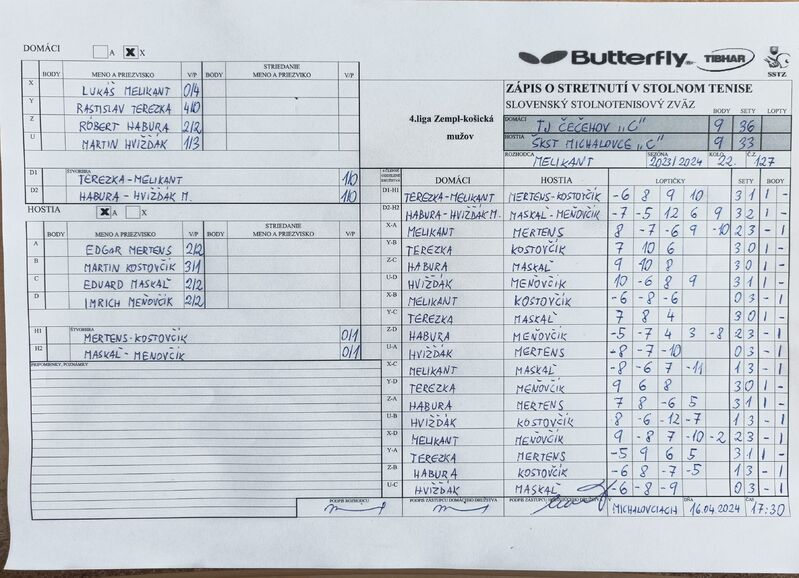 DOMÁCI A X X
BODY MENO A PRIEZVISKO V/P BODY STRIEDANIE MENO A PRIEZVIKO V/P
X LUKÁŠ MELIKANT 0/4
Y RASTISLAV TEREZKA 4/0
Z RÓBERT HABURA 2/2
U MARTIN HVIŽĎÁK 1/3
D1 ŠTVORHRA TEREZKA - MELIKANT 1/0
D2 HABURA - HVIŽĎÁK M. 1/0
HOSTIA X A X
BODY MENO A PRIEZVISKO V/P BODY STRIEDANIE MENO A PRIEZVISKO V/P
A EDGOR MERTENS 2/2
B MARTIN KOSTOVČÍK 3/1
C EDUARD MASKAĽ 2/2
D IMRICH MEŇOVČÍK 2/2
H1 ŠTVORHRA MERTENS - KOSTOVČÍK 0/1
H2 MASKAĽ - MEŇOVČÍK 0/1
PRIPOMIENKY, POZNÁMKY
Butterfly TIBHAR SSTZ
4.liga Zempl-košická
mužov
ZÁPIS O STRETNUTÍ V STOLNOM TENISE
SLOVENSKÝ STOLNOTENISOVÝ ZVÄZ BODY SETY LOPTY
DOMÁCI TJ ČEČEHOV "C" 9 36
HOSTIA ŠKST MICHALOVCE "C" 9 33
ROZHODCA MELIKANT SEZÓNA 2023/2024 KOLO 22. Č.Z. 127
DOMÁCI HOSTIA LOPTIČKY SETY BODY
D1-H1 TEREZKA - MELIKANT MERTENS - KOSTOVČÍK -6 8 9 10 3 1 1 -
D2-H2 HABURA - HVIŽĎÁK M. MASKAĽ - MEŇOVČÍK -7 -5 12 6 9 3 2 1 -
X-A MELIKANT MERTENS 8 -7 -6 9 -10 2 3 - 1
Y-B TEREZKA KOSTOVČÍK 7 10 6 3 0 1 -
Z-C HABURA MASKAĽ 9 10 8 3 0 1 -
U-D HVIŽĎÁK MEŇOVČÍK 10 -6 8 9 3 1 1 -
X-B MELIKANT KOSTOVČÍK -6 -8 -6 0 3 - 1
Y-C TEREZKA MASKAĽ 7 8 4 3 0 1 -
Z-D HABURA MEŇOVČÍK -5 -7 4 3 -8 2 3 - 1
U-A HVIŽĎÁK MERTENS -8 -7 -10 0 3 - 1
X-C MELIKANT MASKAĽ -8 -6 7 -11 1 3 - 1
Y-D TEREZKA MEŇOVČÍK 9 6 8 3 0 1 -
Z-A HABURA MERTENS 7 8 -6 5 3 1 1 -
U-B HVIŽĎÁK KOSTOVČÍK 8 -6 -12 -7 1 3 - 1
X-D MELIKANT MEŇOVČÍK 9 -8 7 -10 -2 2 3 - 1
Y-A TEREZKA MERTENS -5 9 6 5 3 1 1 -
Z-B HABURA KOSTOVČÍK -6 8 -7 -5 1 3 - 1
U-C HVIŽĎÁK MASKAĽ -6 -8 -9 0 3 - 1
PODPIS ROZHODCU PODPIS ZÁSTUPCU DOMÁCEHO DRUŽSTVA PODPIS ZÁSTUPCU HOSŤUJÚCEHO DRUŽSTVA V MICHALOVCIACH DŇA 16.04.2024 ČAS 17:30